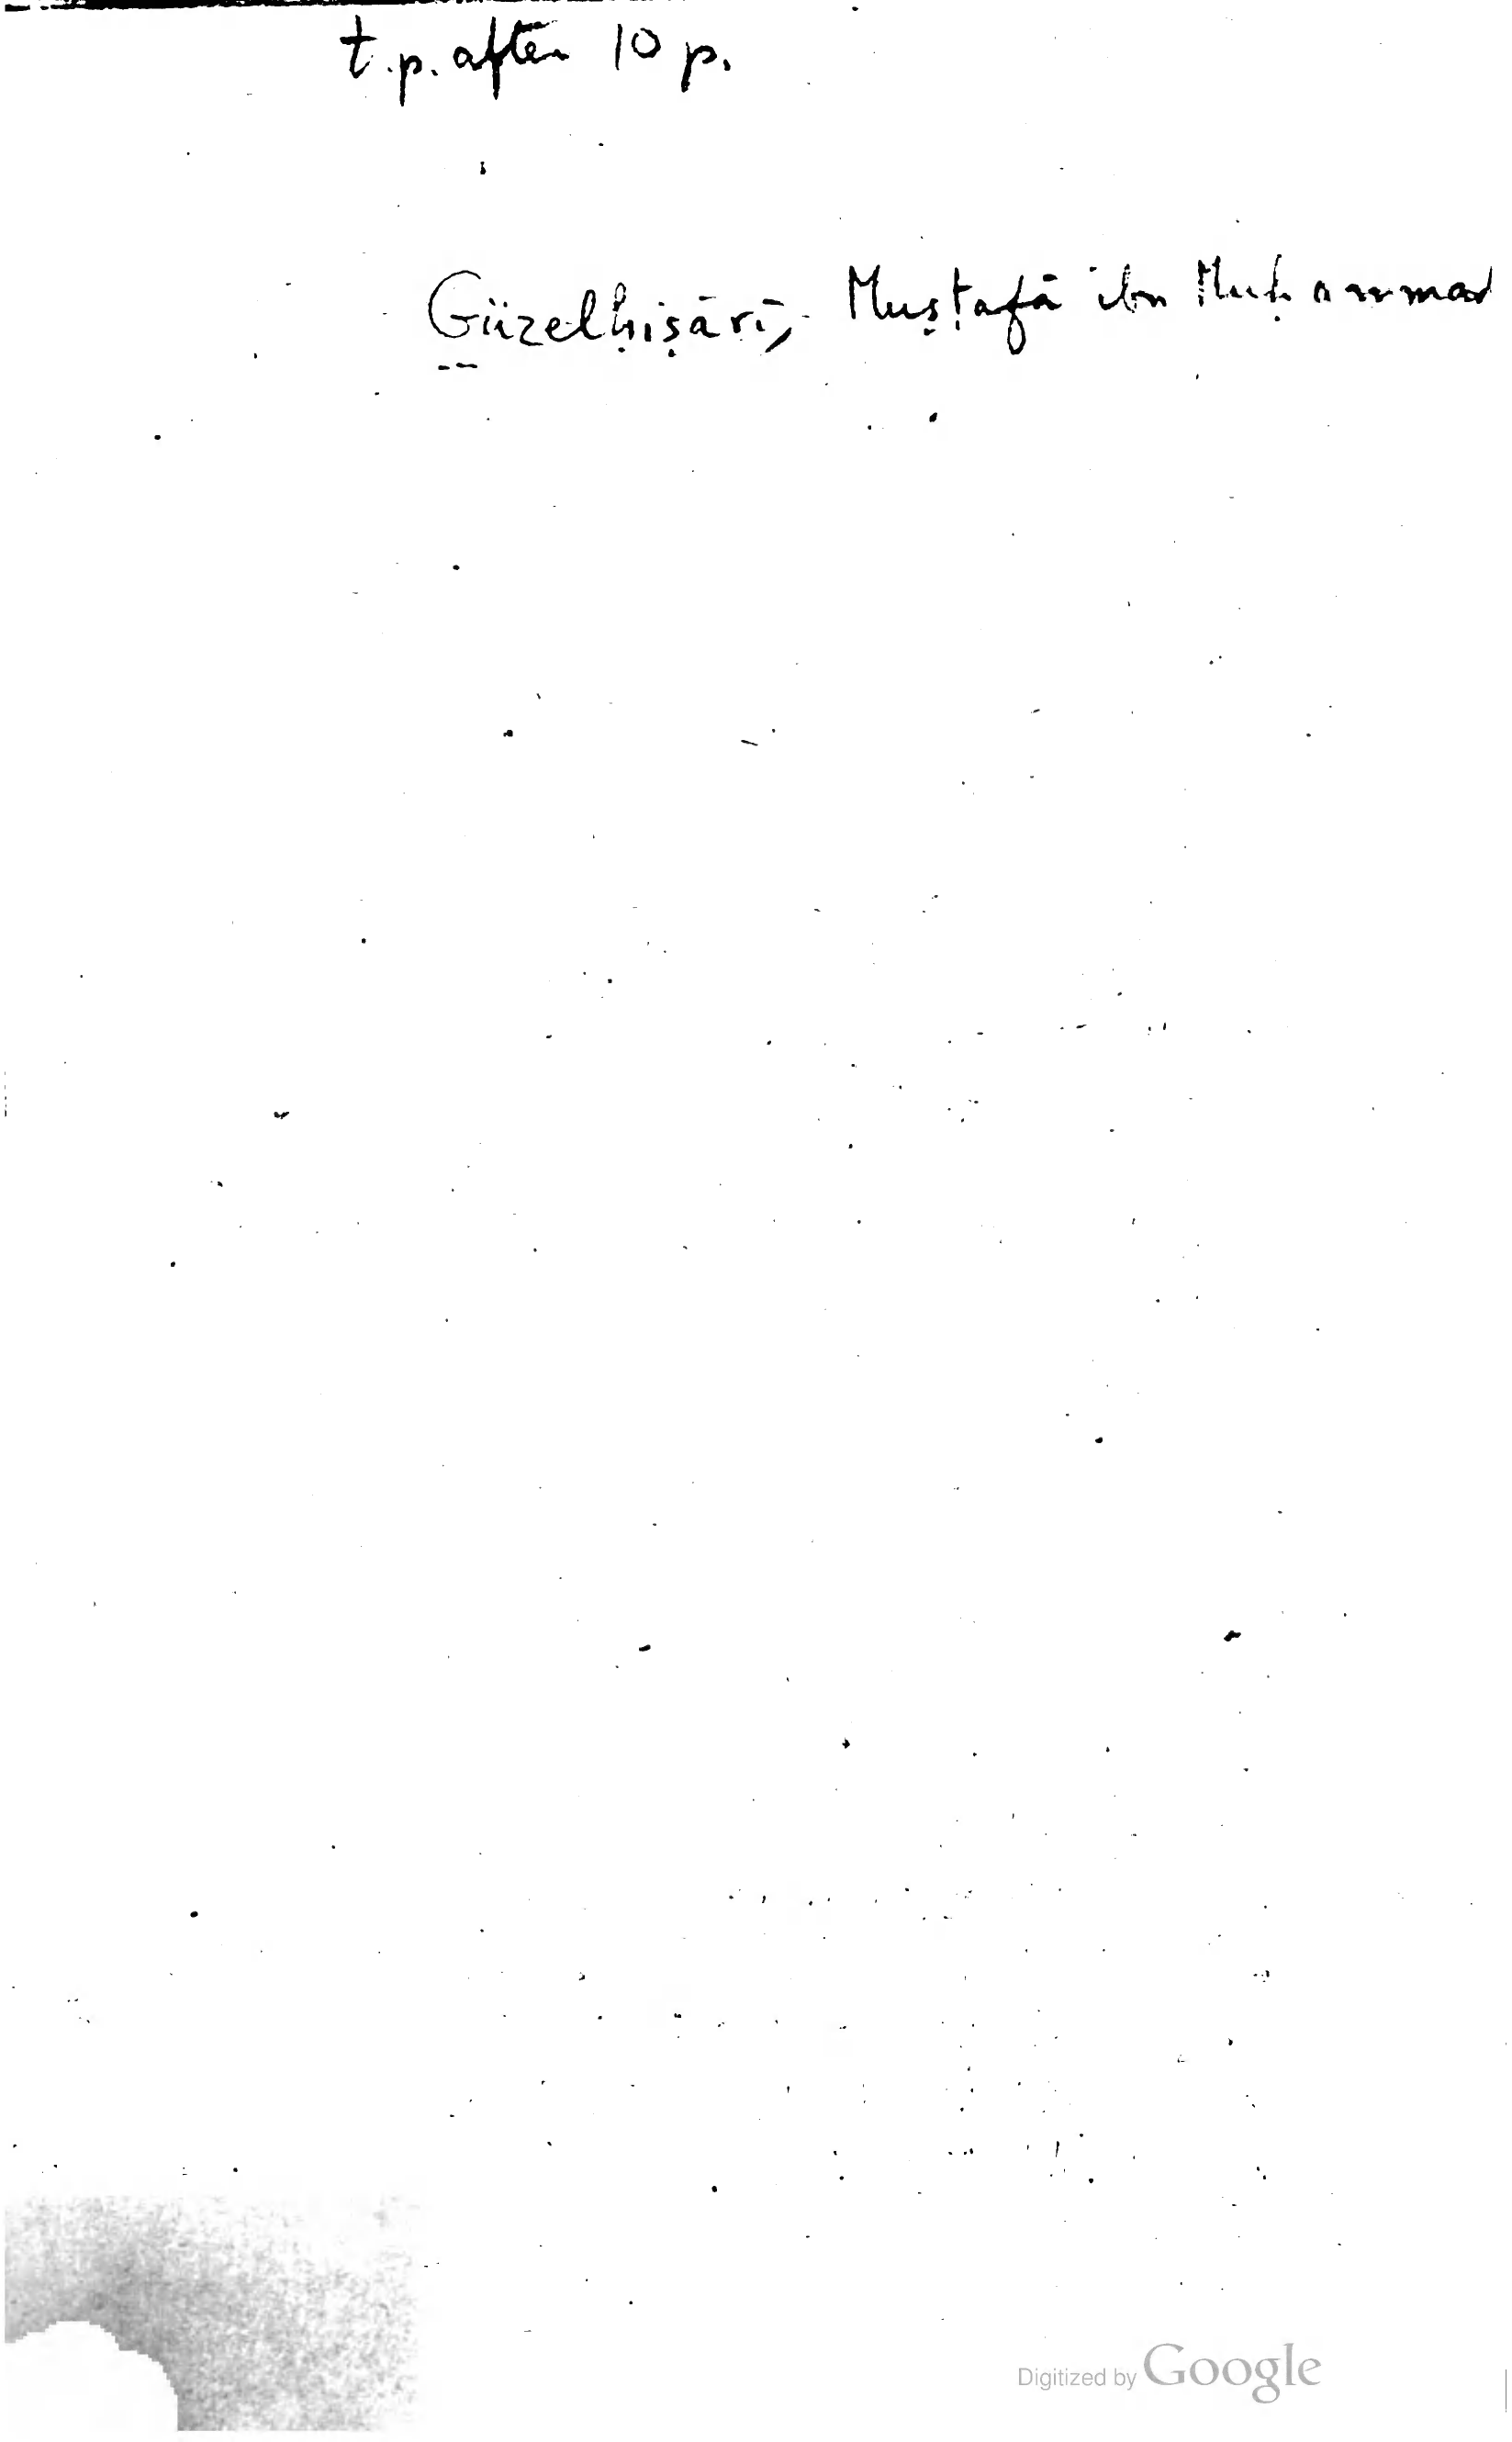 t.p. after 10 p.
Güzelḥiṣārī, Muṣṭafā ibn Muḥammad
Digitized by Google